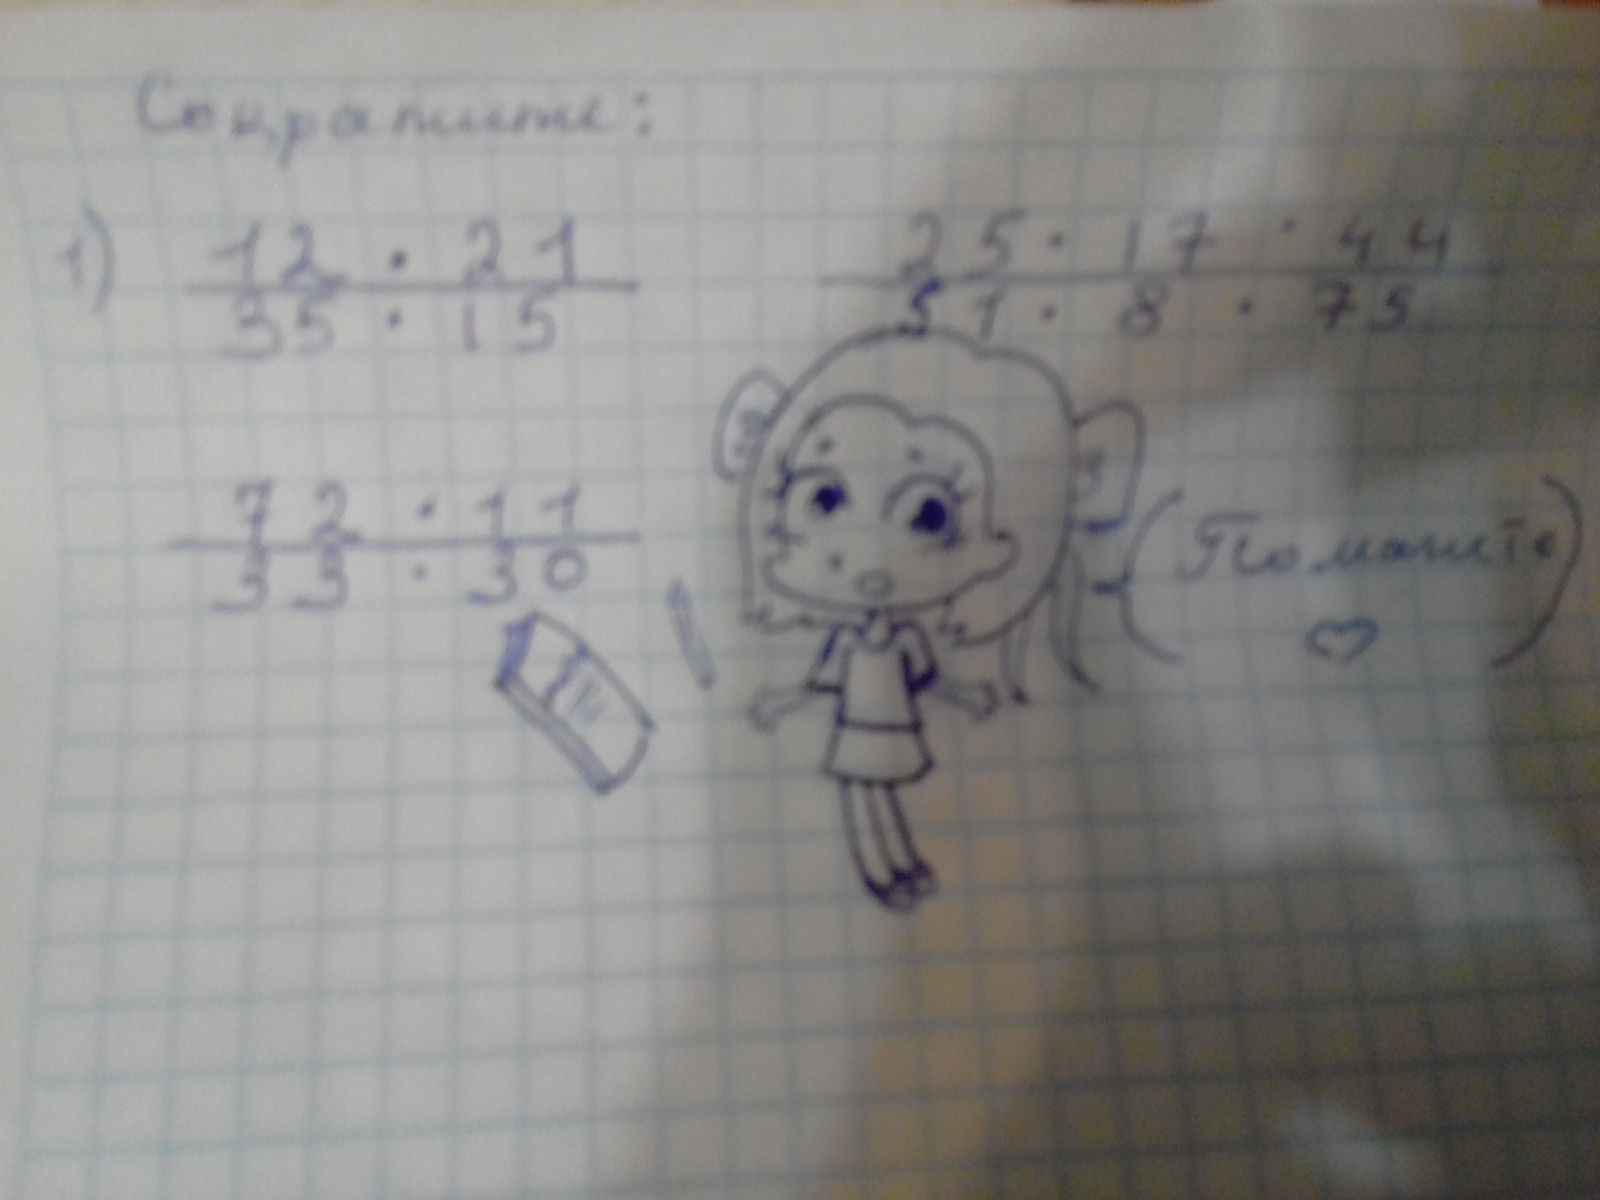 Сократите:
1) 12 · 21
35 · 15
25 · 17 · 44
51 · 8 · 75
72 · 11
33 · 30
(Помогите)